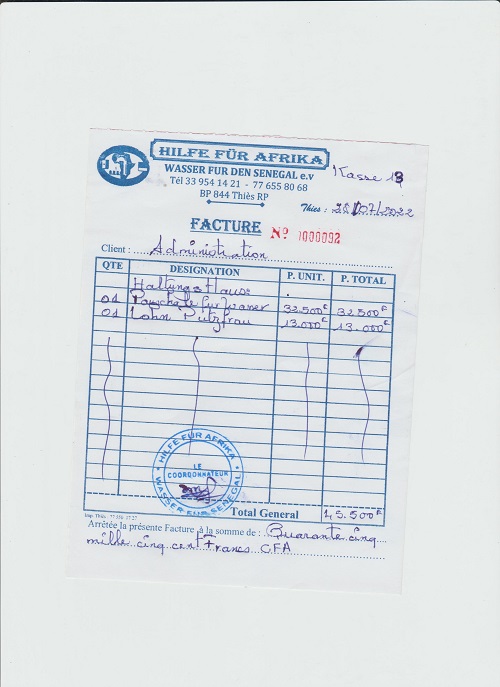 HILFE FÜR AFRIKA
WASSER FUR DEN SENEGAL e.v
Tél 33 954 14 21 - 77 655 80 68
BP 844 Thiès RP
Kasse 13
Thies : /07/2022
FACTURE Nº 0000092
Client : Administration
QTE DESIGNATION P. UNIT. P. TOTAL
Haltungs Hause
01 Pauschale für Waner 32.500F 32.500F
01 Lohn Putzfrau 13.000F 13.000F
HILFE FUR AFRIKA
LE
COORDONNATEUR
WASSER FUR SENEGAL
Total General 45.500F
Imp. Thiès
Arrêtée la présente Facture à la somme de : Quarante cinq
mille cinq cent Francs CFA